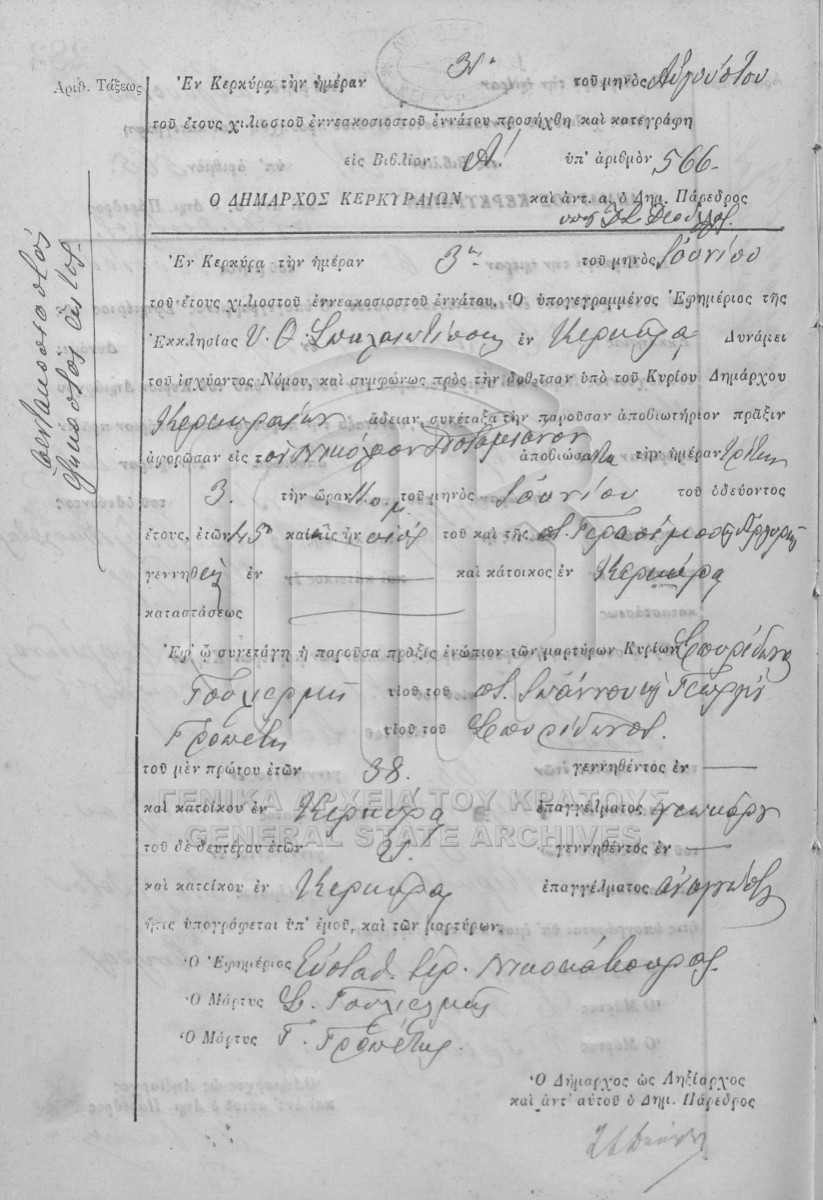 Ἀριθ. Τάξεως
πεντακοσιοστὸς
ἑξηκοστὸς ἕκτος.
Ἐν Κερκύρᾳ τὴν ἡμέραν 3ην τοῦ μηνὸς Αὐγούστου
τοῦ ἔτους χιλιοστοῦ ἐννεακοσιοστοῦ ἐννάτου προσήχθη καὶ κατεγράφη
εἰς Βιβλίον Α! ὑπ' ἀριθμὸν 566-
Ὁ ΔΗΜΑΡΧΟΣ ΚΕΡΚΥΡΑΙΩΝ καὶ ἀντ. α. ὁ Δημ. Πάρεδρος
Ἐν Κερκύρᾳ τὴν ἡμέραν 3ην τοῦ μηνὸς Ἰουνίου
τοῦ ἔτους χιλιοστοῦ ἐννεακοσιοστοῦ ἐννάτου. Ὁ ὑπογεγραμμένος Ἐφημέριος τῆς
Ἐκκλησίας Υ. Θ. Σπηλαιωτίσσης ἐν Κερκύρᾳ Δυνάμει
τοῦ ἰσχύοντος Νόμου, καὶ συμφώνως πρὸς τὴν δοθεῖσαν ὑπὸ τοῦ Κυρίου Δημάρχου
Κερκυραίων ἄδειαν, συνέταξα τὴν παροῦσαν ἀποβιωτήριον πρᾶξιν
ἀφορῶσαν εἰς τὸν Νικόλαον Ποταμιάνον ἀποβιώσαντα τὴν ἡμέραν Τρίτην
3. τὴν ὥραν 11 π.μ. τοῦ μηνὸς Ἰουνίου τοῦ ὁδεύοντος
ἔτους, ἐτῶν 45 καὶ εἰς ἦν υἱὸς τοῦ καὶ τῆς π. Γερασίμου
γεννηθεὶς ἐν καὶ κάτοικος ἐν Κερκύρᾳ
καταστάσεως
Ἐφ' ᾧ συνετάγη ἡ παροῦσα πρᾶξις ἐνώπιον τῶν μαρτύρων Κυρίων Σπυρίδωνα
Γουλιερμῆ υἱοῦ τοῦ π. Ἰωάννου κ Γεωργ
Γραπέτη υἱοῦ τοῦ Σπυρίδωνος.
τοῦ μὲν πρώτου ἐτῶν 38. γεννηθέντος ἐν
καὶ κατοίκου ἐν Κερκύρᾳ ἐπαγγέλματος
ΓΕΝΙΚΑ ΑΡΧΕΙΑ ΤΟΥ ΚΡΑΤΟΥΣ
GENERAL STATE ARCHIVES
τοῦ δὲ δευτέρου ἐτῶν γεννηθέντος ἐν
καὶ κατοίκου ἐν Κερκύρᾳ ἐπαγγέλματος ἀναγνώστ
ἥτις ὑπογράφεται ὑπ' ἐμοῦ, καὶ τῶν μαρτύρων.
Ὁ Ἐφημέριος Εὐσταθ. ἱερ.
Ὁ Μάρτυς Σ. Γουλιελμῆς
Ὁ Μάρτυς Γ. Γραπέτης.
Ὁ Δήμαρχος ὡς Ληξίαρχος
καὶ ἀντ' αὐτοῦ ὁ Δημ. Πάρεδρος